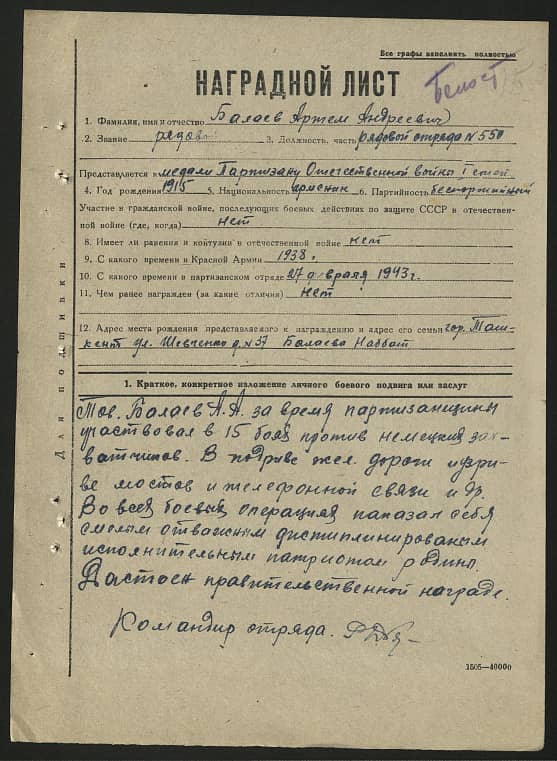 Все графы заполнять полностью
НАГРАДНОЙ ЛИСТ
Белост
1. Фамилия, имя и отчество Балаев Артем Андреевич
2. Звание рядовой 3. Должность, часть рядовой отряда N 550
Представляется к медали Партизану Отечественной войны I степ
4. Год рождения 1915 5. Национальность армянин 6. Партийность беспартийный
Участие в гражданской войне, последующих боевых действиях по защите СССР и отечествен-
ной войне (где, когда) нет
8. Имеет ли ранения и контузии в отечественной войне нет
9. С какого времени в Красной Армии 1938 г.
10. С какого времени в партизанском отряде 27 февраля 1943 г.
11. Чем ранее награжден (за какие отличия) нет
12. Адрес места рождения представляемого к награждению и адрес его семьи гор. Таш-
кент ул. Шевченко д. N 37 Балаева Наббат
Для подшивки
1. Краткое, конкретное изложение личного боевого подвига или заслуг
Тов. Балаев А.А. за время партизанщины
участвовал в 15 боях против немецких зах-
ватчиков. В подриве жел. дороги и узри-
ве мостов и телефонной связи и др.
Во всех боевых операциях паказал себя
смелым отважным дисциплинированым
исполнительным патриотом родины.
Дастоен правительственной награде.
Командир отряда.
1505—40000